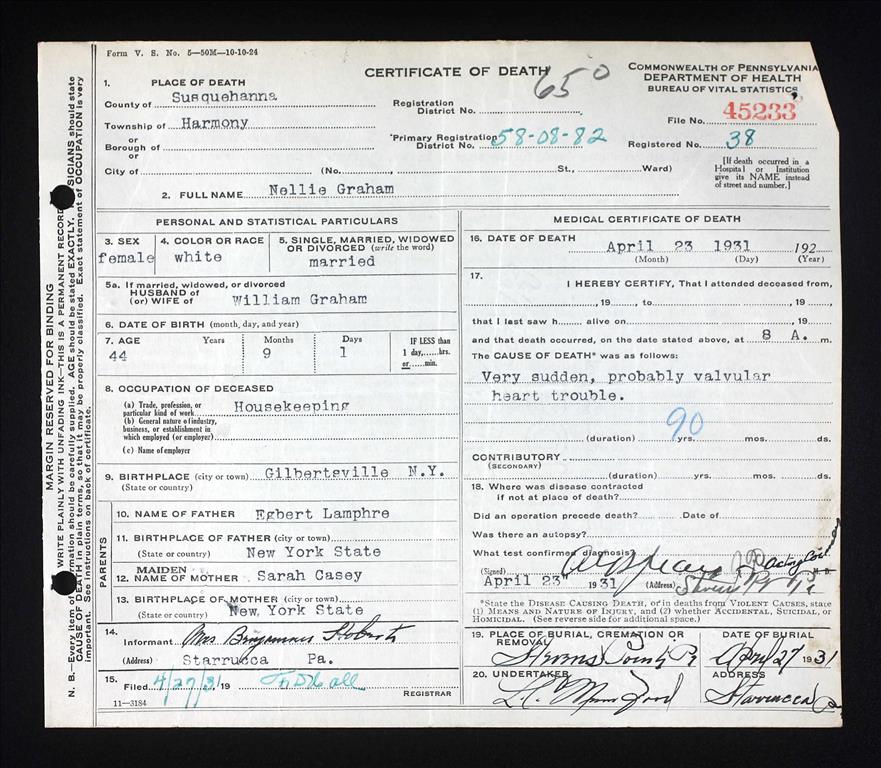 Form V. S. No. 5—50M—10-10-24
CERTIFICATE OF DEATH
650
COMMONWEALTH OF PENNSYLVANIA
DEPARTMENT OF HEALTH
BUREAU OF VITAL STATISTICS
1. PLACE OF DEATH
County of Susquehanna
Township of Harmony
or
Borough of
or
City of (No. , St., Ward)
Registration District No.
*Primary Registration District No. 58-08-82
File No. 45233
Registered No. 38
[If death occurred in a
Hospital or Institution
give its NAME instead
of street and number.]
2. FULL NAME Nellie Graham
MARGIN RESERVED FOR BINDING
WRITE PLAINLY WITH UNFADING INK—THIS IS A PERMANENT RECORD
N. B.—Every item of information should be carefully supplied. AGE should be stated EXACTLY. PHYSICIANS should state
CAUSE OF DEATH in plain terms, so that it may be properly classified. Exact statement of OCCUPATION is very
important. See instructions on back of certificate.
PERSONAL AND STATISTICAL PARTICULARS
3. SEX
female
4. COLOR OR RACE
white
5. SINGLE, MARRIED, WIDOWED
OR DIVORCED (write the word)
married
5a. If married, widowed, or divorced
HUSBAND of
(or) WIFE of William Graham
6. DATE OF BIRTH (month, day, and year)
7. AGE Years Months Days IF LESS than
44 9 1 1 day,......hrs.
or......min.
8. OCCUPATION OF DECEASED
(a) Trade, profession, or
particular kind of work Housekeeping
(b) General nature of industry,
business, or establishment in
which employed (or employer)
(c) Name of employer
9. BIRTHPLACE (city or town) Gilbertsville N.Y.
(State or country)
PARENTS
10. NAME OF FATHER Egbert Lamphre
11. BIRTHPLACE OF FATHER (city or town)
(State or country) New York State
12. MAIDEN NAME OF MOTHER Sarah Casey
13. BIRTHPLACE OF MOTHER (city or town)
(State or country) New York State
14.
Informant Mrs Roberts
(Address) Starrucca Pa.
15.
Filed 4/27/31, 19
REGISTRAR
11—3184
MEDICAL CERTIFICATE OF DEATH
16. DATE OF DEATH April 23 1931 192
(Month) (Day) (Year)
17. I HEREBY CERTIFY, That I attended deceased from
, 19 , to , 19 ,
that I last saw h alive on , 19
and that death occurred, on the date stated above, at 8 A. m.
The CAUSE OF DEATH* was as follows:
Very sudden, probably valvular
heart trouble.
90
(duration) yrs. mos. ds.
CONTRIBUTORY
(SECONDARY)
(duration) yrs. mos. ds.
18. Where was disease contracted
if not at place of death?
Did an operation precede death? Date of
Was there an autopsy?
What test confirmed diagnosis?
(Signed) Acting M. D.
April 23 1931 (Address)
*State the DISEASE CAUSING DEATH, or in deaths from VIOLENT CAUSES, state
(1) MEANS AND NATURE OF INJURY, and (2) whether ACCIDENTAL, SUICIDAL, or
HOMICIDAL. (See reverse side for additional space.)
19. PLACE OF BURIAL, CREMATION OR
REMOVAL
Stevens Point Pa
DATE OF BURIAL
April 27 1931
20. UNDERTAKER
ADDRESS
Starrucca Pa